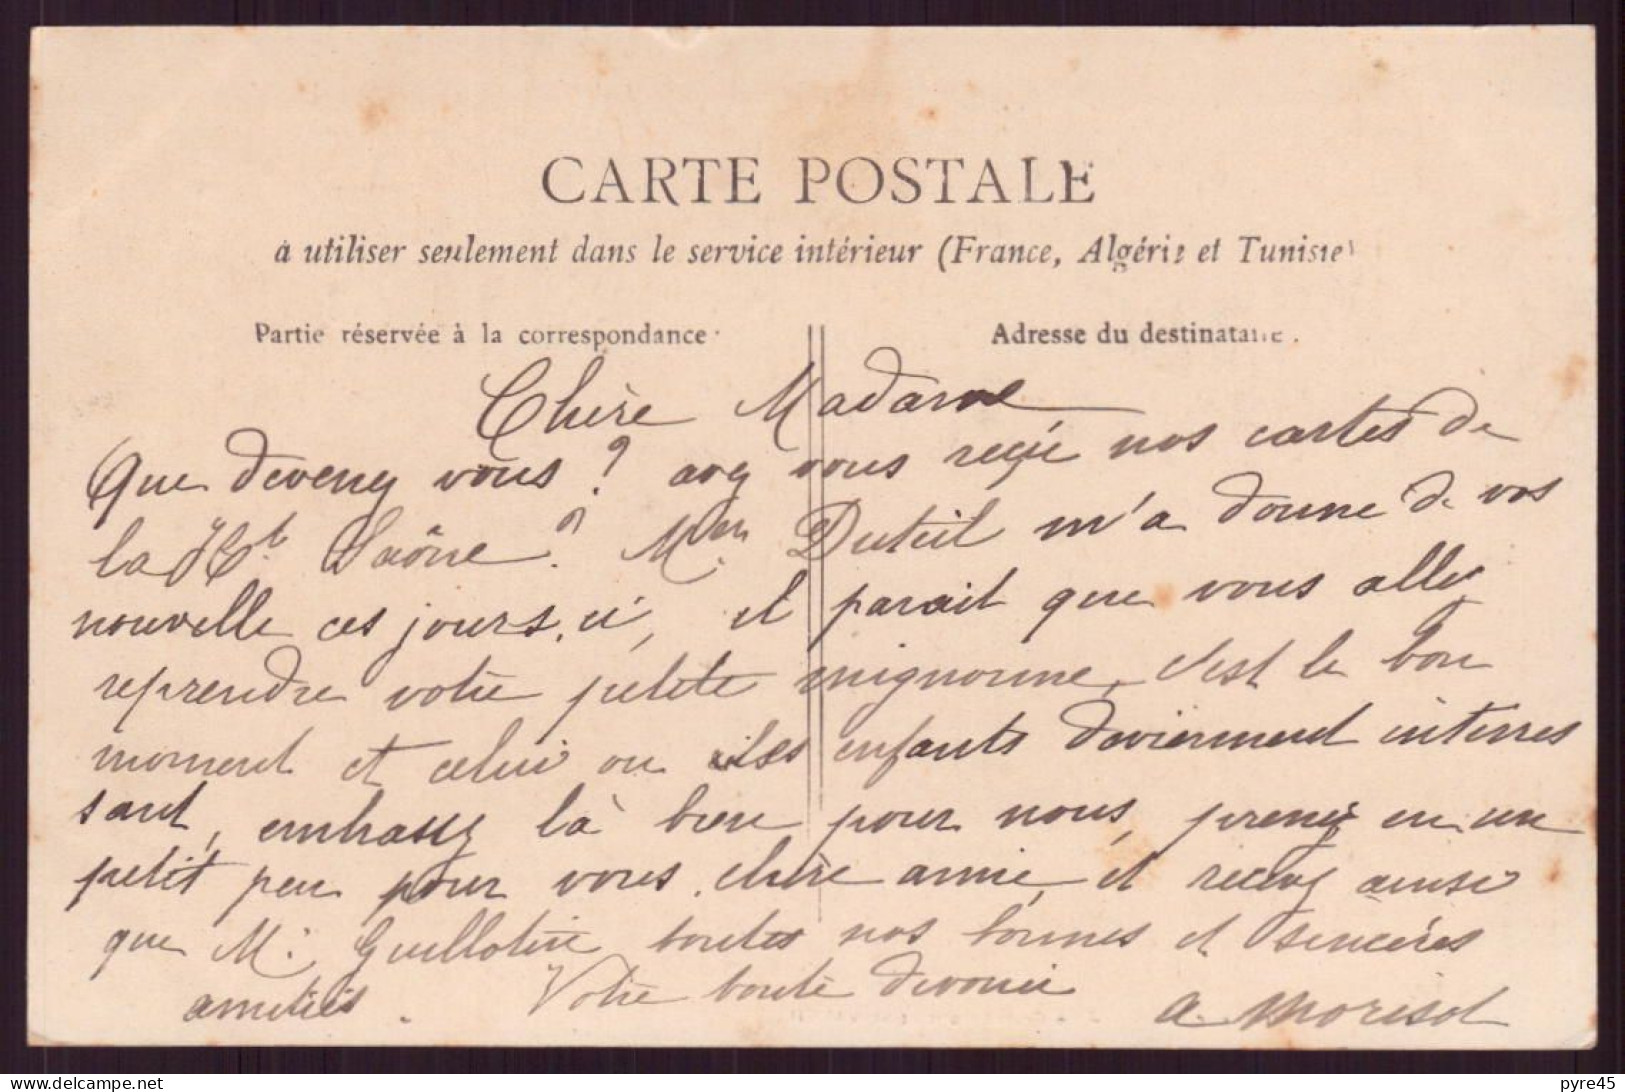 CARTE POSTALE
à utiliser seulement dans le service intérieur (France, Algérie et Tunisie)
Partie réservée à la correspondance
Adresse du destinataire.
Chère Madame
Que devenez vous ? avez vous reçu nos cartes de
la Hte Saône ? Mme Duteil m'a donné de vos
nouvelle ces jours, ci, il parait que vous allez
reprendre votre petite mignonne, c'est le bon
moment et celui ou les enfants deviennent interres
sant, embrassez là bien pour nous, prenez en un
petit peu pour vous, chère amie, et recevez ainsi
que M. Guillotin toutes nos bonnes et sincères
amitiés. Votre toute dévouée
A. Morisot
pyre45